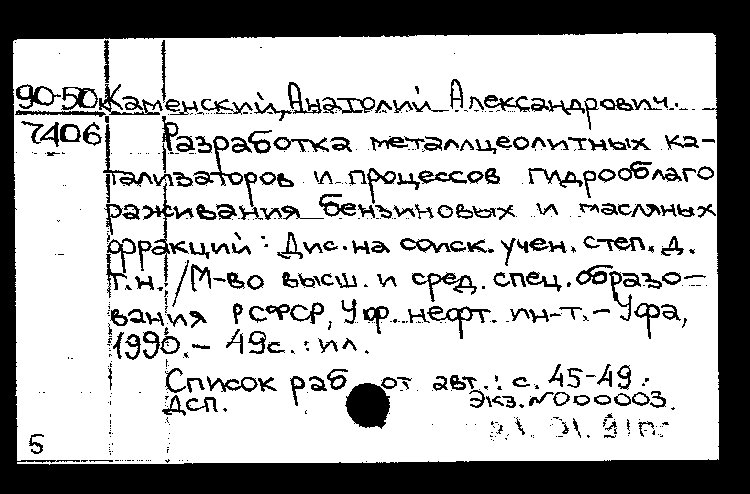 90-50к Каменский, Анатолий Александрович.
7406 Разработка металлцеолитных ка-
тализаторов и процессов гидрооблаго
раживания бензиновых и масляных
фракций: Дис. на соиск. учен. степ. д.
т.н. / М-во высш. и сред. спец. образо-
вания РСФСР, Уфр. нефт. ин-т. - Уфа,
1990. - 49с.: ил.
Список раб от авт.: с. 45-49.
Дсп. Экз. №000003.
21. 01. 91г.
5